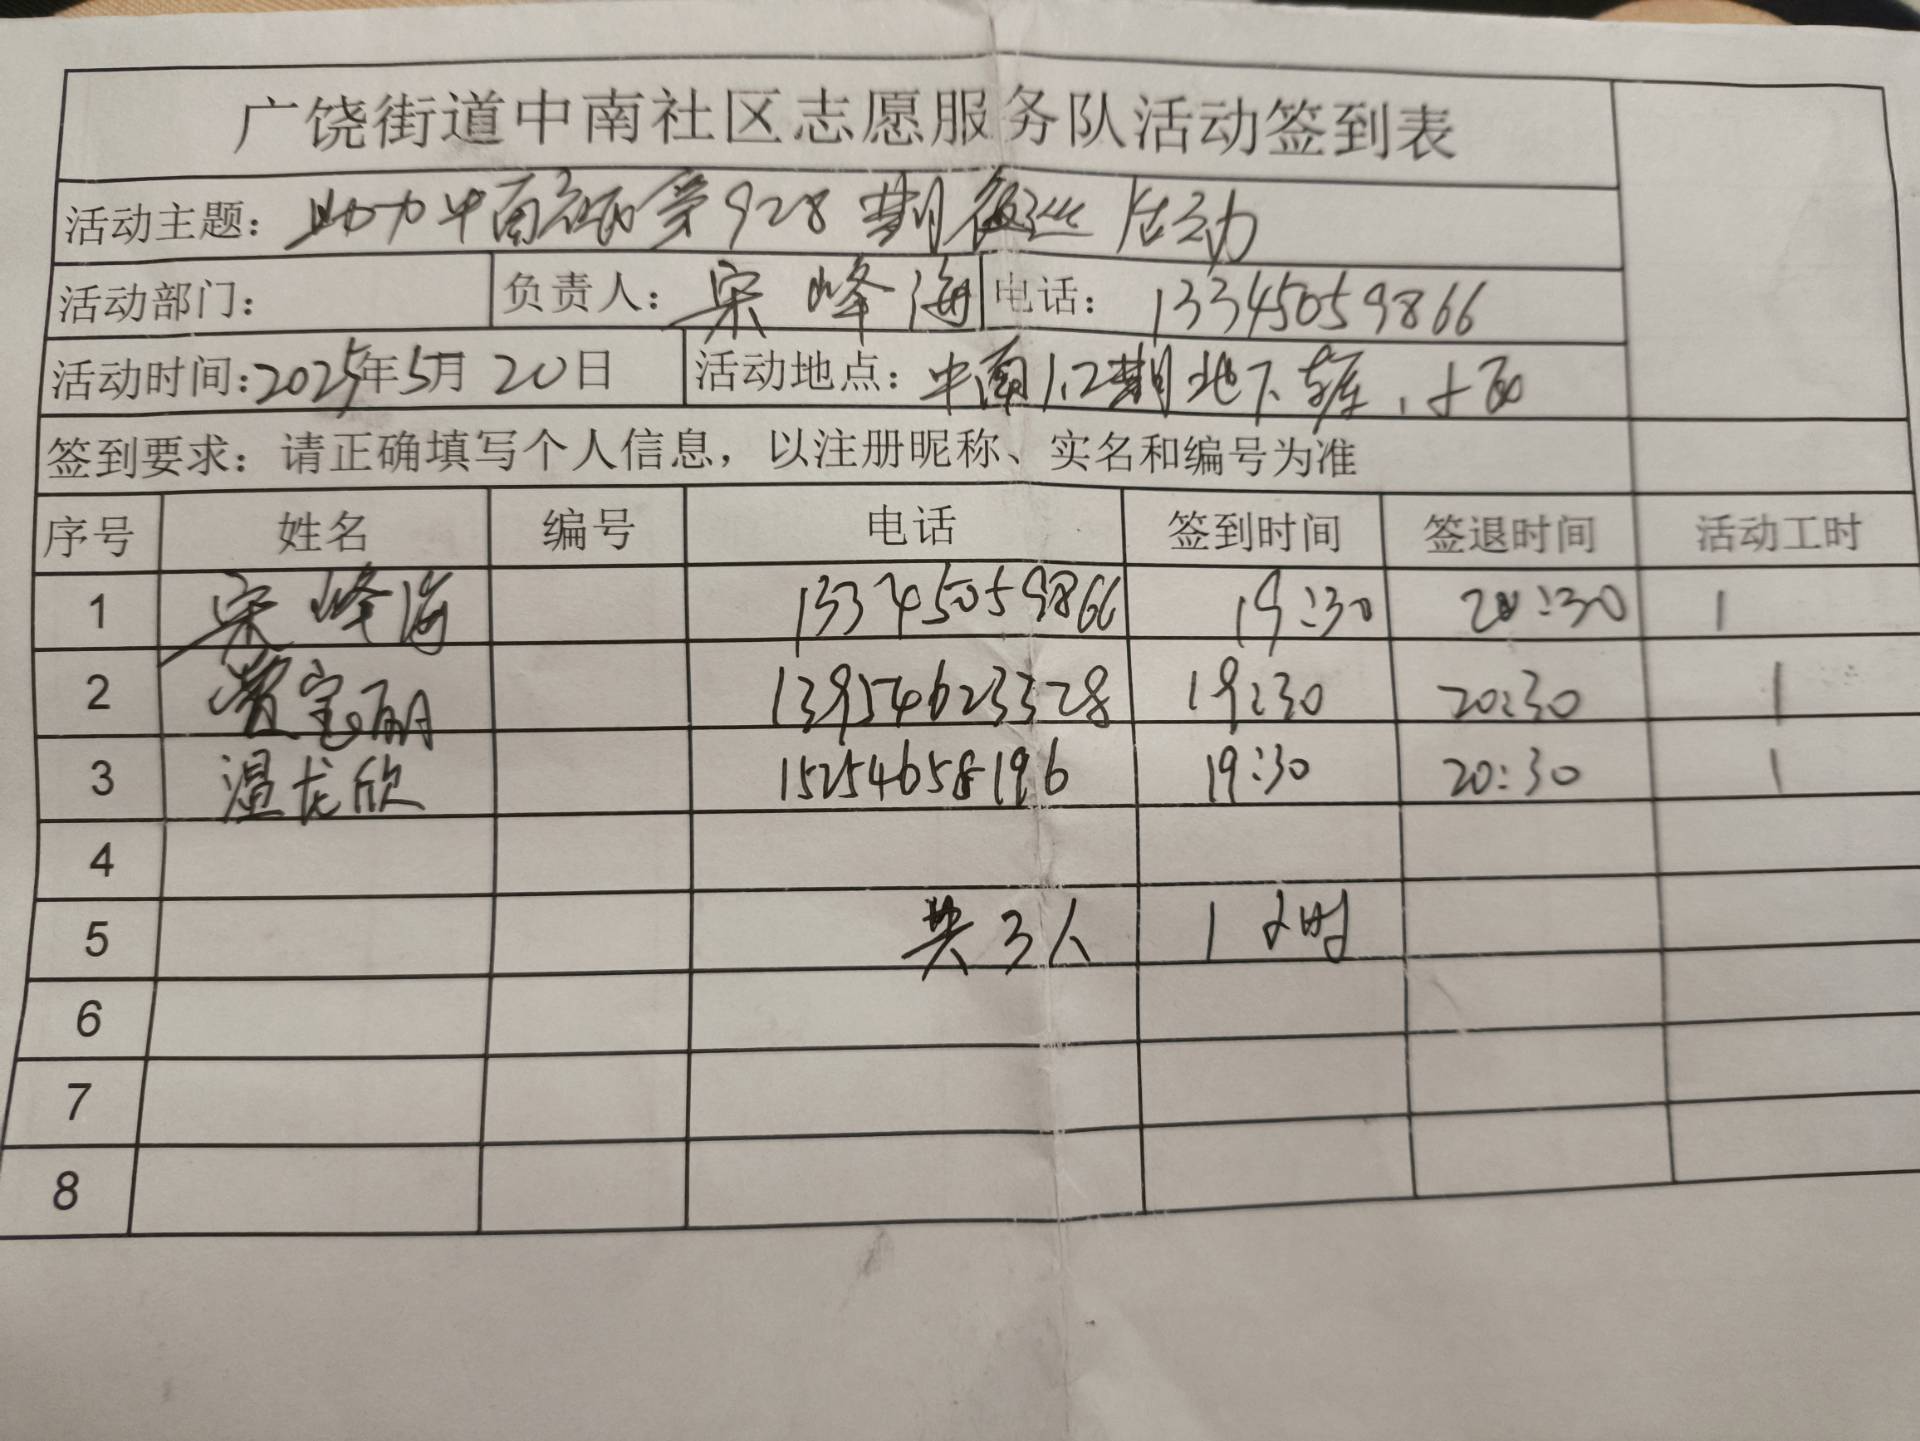 广饶街道中南社区志愿服务队活动签到表
活动主题：助力中南 第928期夜巡活动
活动部门： 负责人：宋峰海 电话：13345059866
活动时间：2025年5月20日 活动地点：中南1.2期地下库
签到要求：请正确填写个人信息，以注册昵称、实名和编号为准
序号 姓名 编号 电话 签到时间 签退时间 活动工时
1 宋峰海 13345059866 19:30 20:30 1
2 宝丽 13954623328 19:30 20:30 1
3 温龙欣 15254658196 19:30 20:30 1
4
5 共3人 1小时
6
7
8